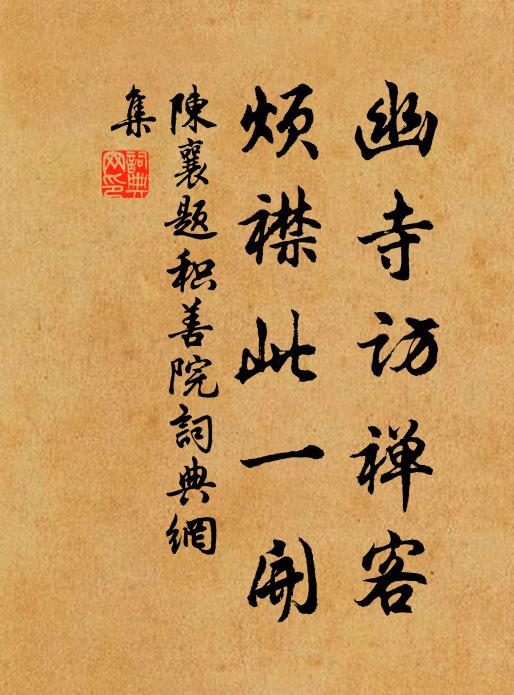 幽寺访禅客
烦襟此一開
陳襄题积善院詞典網
集
詞典
网印